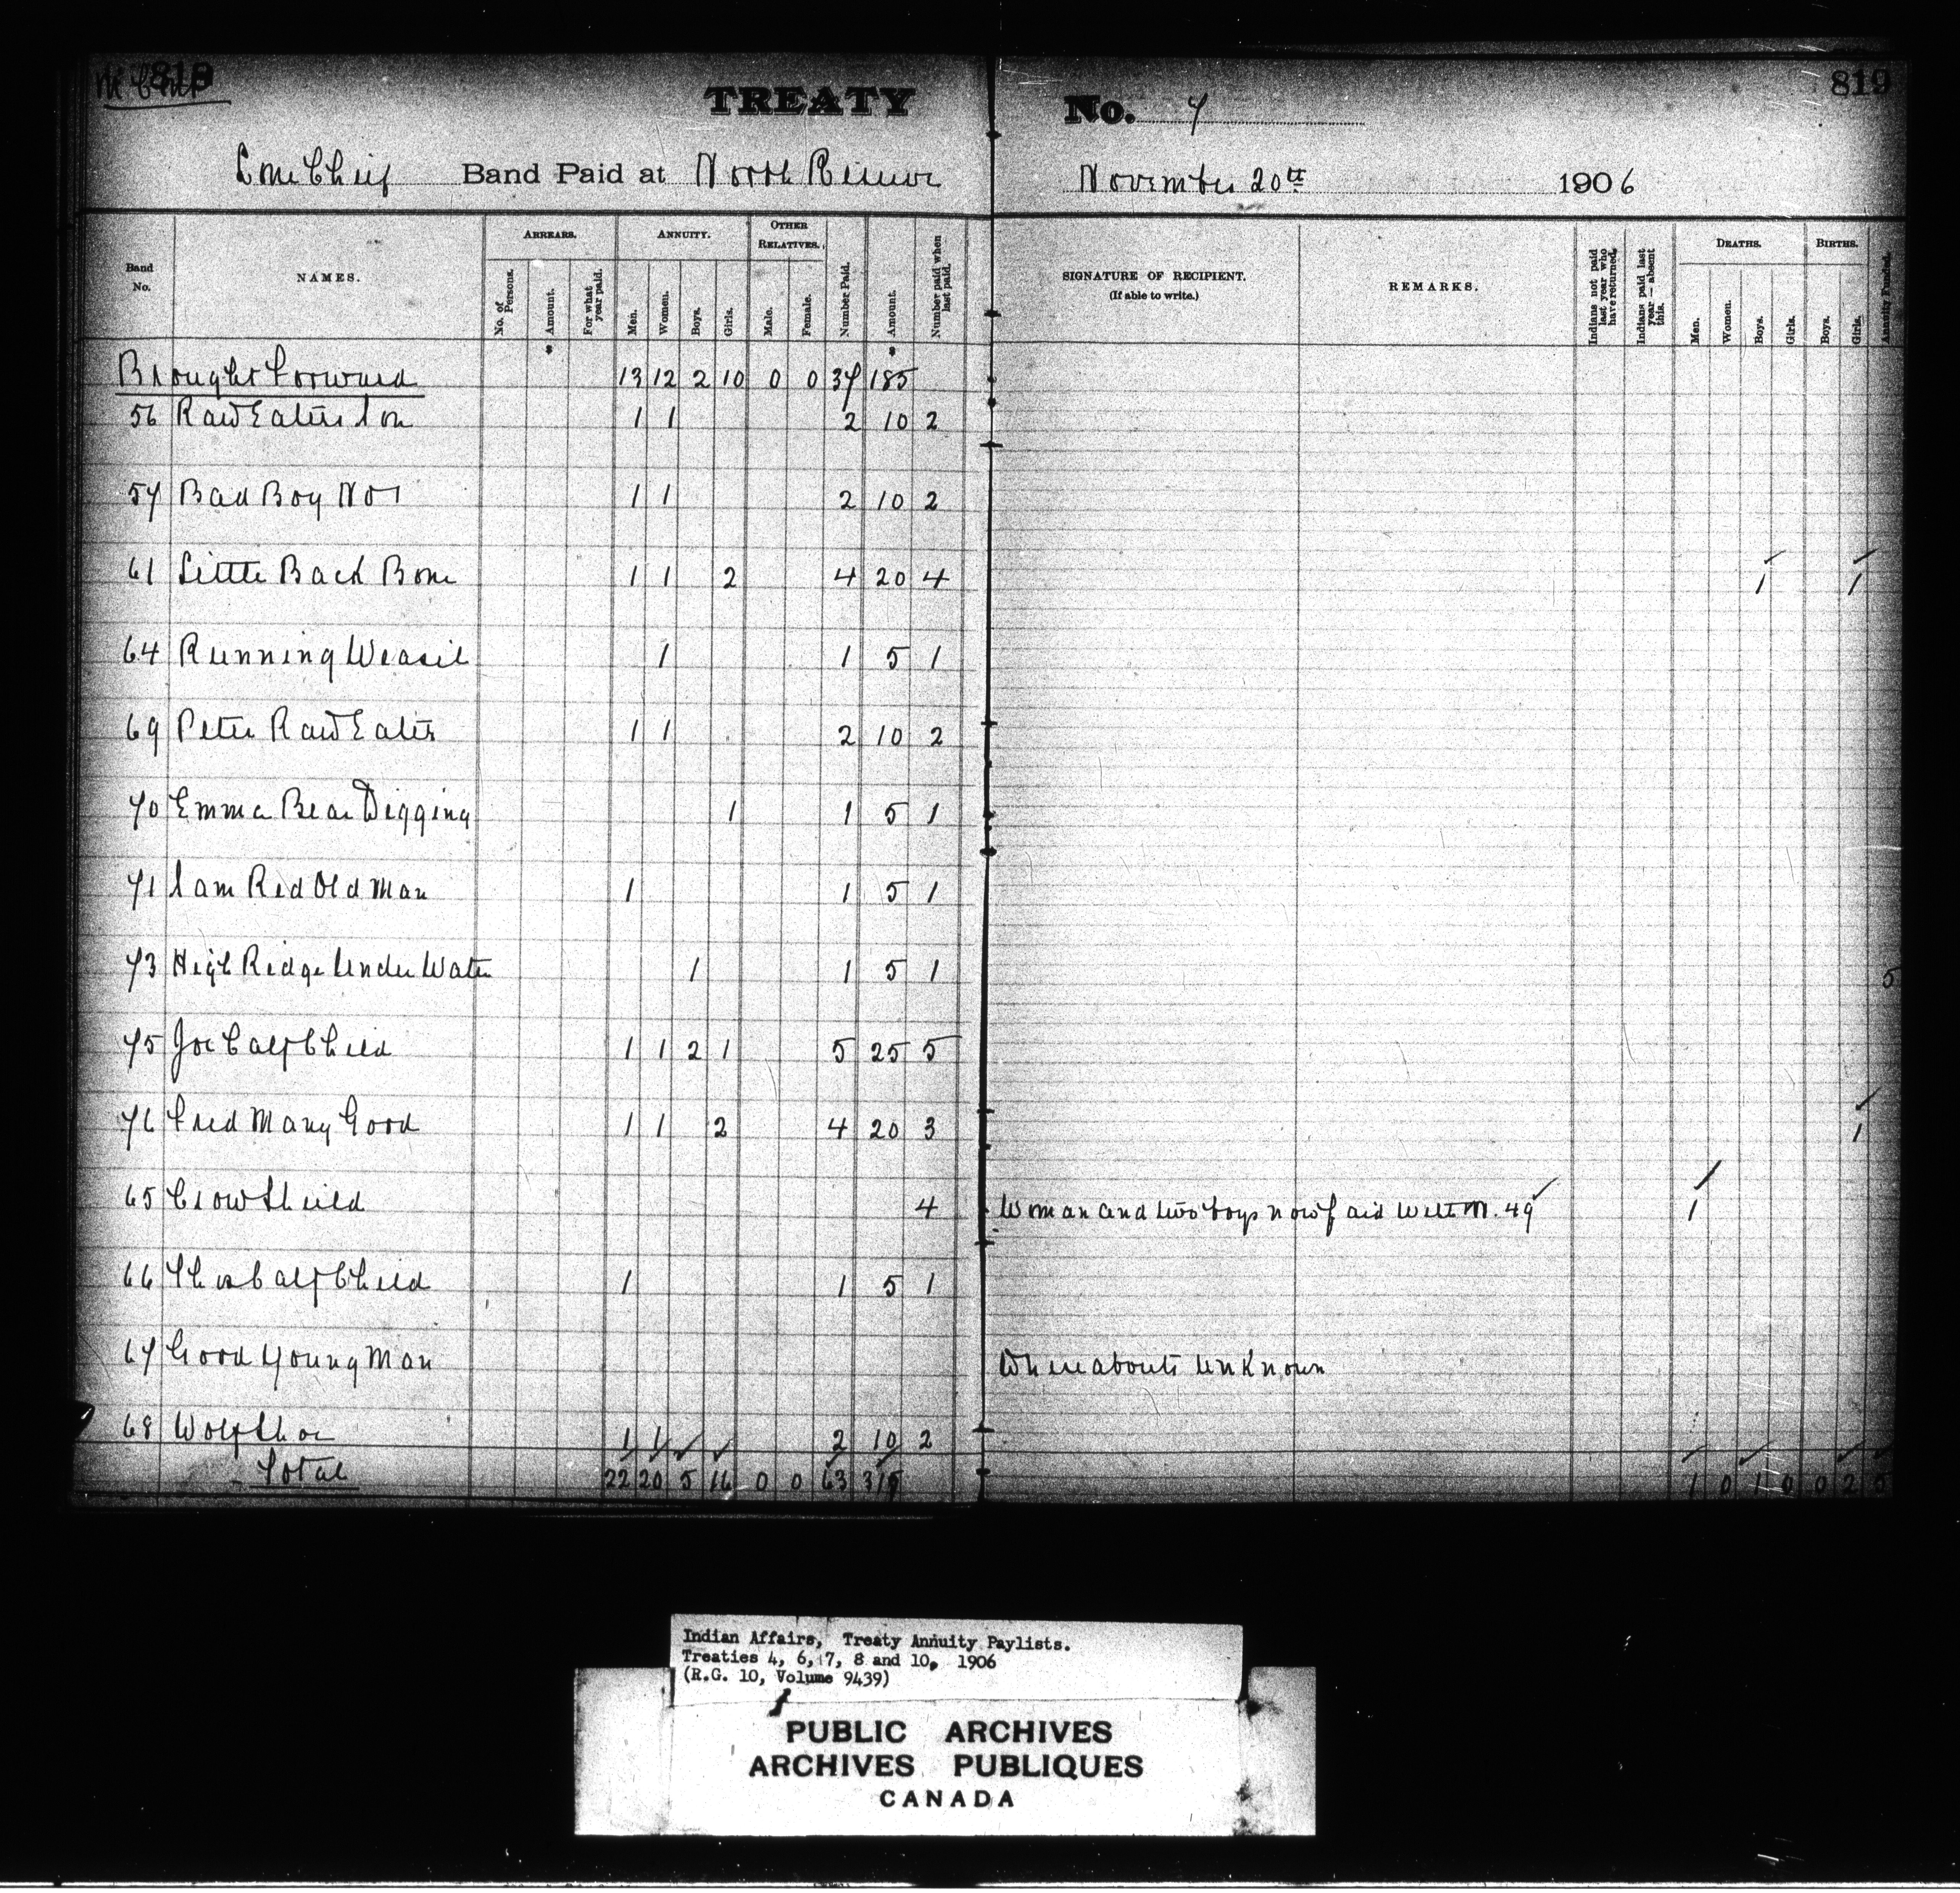 819 819
TREATY No. 7
Lone Chief Band Paid at North Reserve November 20th 1906
Band No. NAMES. ARREARS. No. of Persons. Amount. For what year paid. ANNUITY. Men. Women. Boys. Girls. OTHER RELATIVES. Male. Female. Number Paid. Amount. Number paid when last paid. SIGNATURE OF RECIPIENT. (If able to write.) REMARKS. Indians not paid last year who have returned. Indians paid last year—absent this. DEATHS. Men. Women. Boys. Girls. BIRTHS. Boys. Girls. Annuity Funded.
Brought Forward 13 12 2 10 0 0 37 185
56 Raw Eaters Son 1 1 2 10 2
57 Bad Boy No 1 1 1 2 10 2
61 Little Back Bone 1 1 2 4 20 4 1 1
64 Running Weasil 1 1 5 1
69 Peter Raw Eater 1 1 2 10 2
70 Emma Bear Digging 1 1 5 1
71 Sam Red Old Man 1 1 5 1
73 High Ridge Under Water 1 1 5 1 5
75 Joe Calf Child 1 1 2 1 5 25 5
76 Fred Many Good 1 1 2 4 20 3 1
65 Crow Shield 4 Woman and two boys now paid with M. 49 1
66 Thos Calf Child 1 1 5 1
67 Good Young Man Whereabouts Unknown
68 Wolf Shoe 1 1 2 10 2
Total 22 20 5 16 0 0 63 315 1 0 1 0 0 2 5
Indian Affairs, Treaty Annuity Paylists.
Treaties 4, 6, 7, 8 and 10, 1906
(R.G. 10, Volume 9439)
PUBLIC ARCHIVES
ARCHIVES PUBLIQUES
CANADA